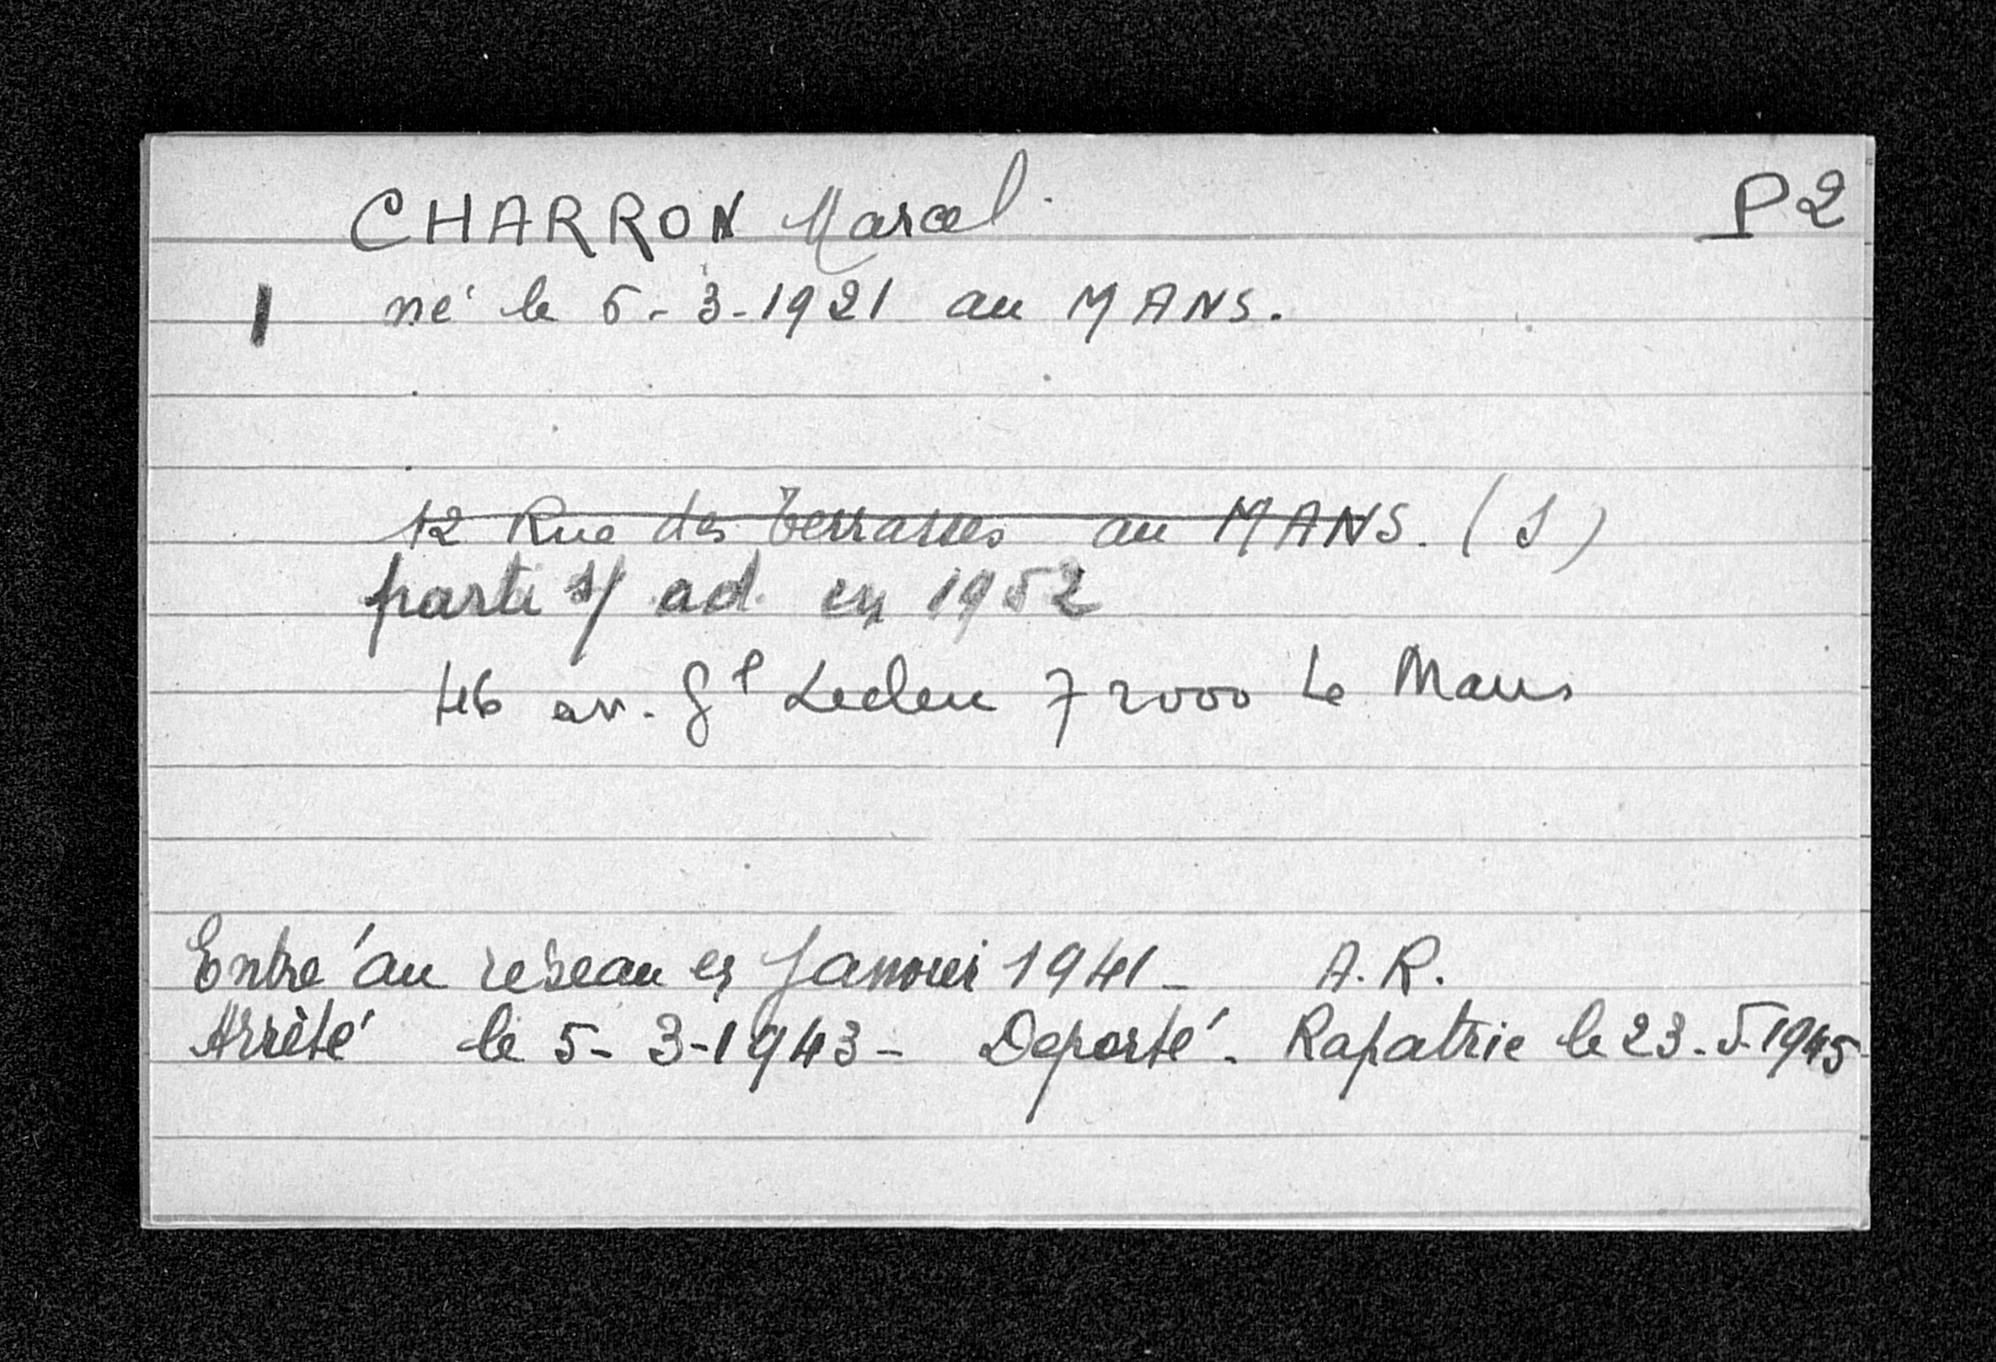 CHARRON Marcel. P2
1 né le 5-3-1921 au MANS.
12 Rue des Terrasses au MANS. (S)
parti s/ ad. en 1952
46 av. Gl Leclerc 72000 Le Mans
Entré au réseau en Janvier 1941 - A.R.
Arrêté le 5-3-1943 - Deporté. Rapatrie le 23-5-1945